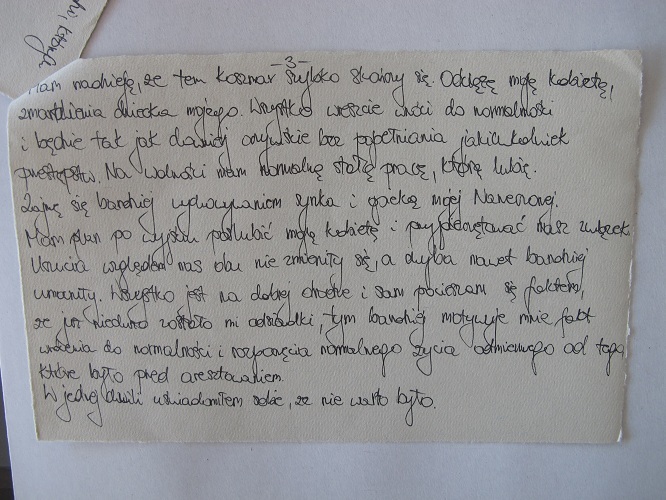 -3-
Mam nadzieję, że ten koszmar szybko skończy się. Odciążę moją kobietę,
zmartwienia dziecka mojego. Wszystko wreszcie wróci do normalności
i będzie tak jak dawniej oczywiście bez popełniania jakichkolwiek
przestępstw. Na wolności mam normalną stałą pracę, którą lubię.
Zajmę się bardziej wychowywaniem synka i opieką mojej Narzeczonej.
Mam plan po wyjściu poślubić moją kobietę i przypieczętować nasz związek.
Uczucia względem nas obu nie zmieniły się, a chyba nawet bardziej
umocniły. Wszystko jest na dobrej drodze i sam pocieszam się faktem,
że już niedużo zostało mi odsiadki, tym bardziej motywuje mnie fakt
wrócenia do normalności i rozpoczęcia normalnego życia odmiennego od tego
które było przed aresztowaniem.
W jednej chwili uświadomiłem sobie, że nie warto było.
która